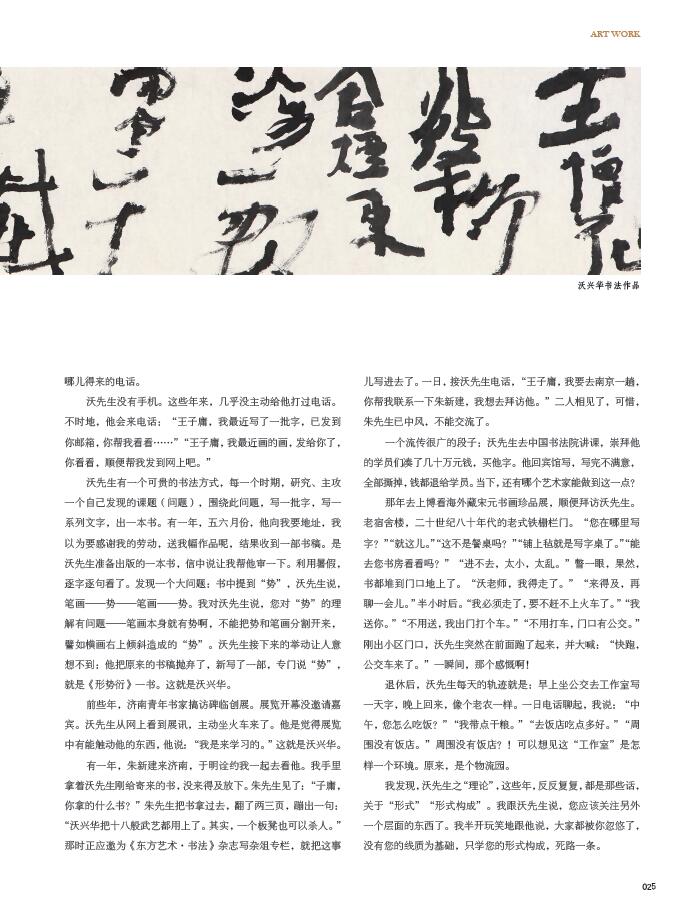 ART WORK
沃兴华书法作品
哪儿得来的电话。
沃先生没有手机。这些年来，几乎没主动给他打过电话。
不时地，他会来电话：“王子庸，我最近写了一批字，已发到
你邮箱，你帮我看看……”“王子庸，我最近画的画，发给你了，
你看看，顺便帮我发到网上吧。”
沃先生有一个可贵的书法方式，每一个时期，研究、主攻
一个自己发现的课题（问题），围绕此问题，写一批字，写一
系列文字，出一本书。有一年，五六月份，他向我要地址，我
以为要感谢我的劳动，送我幅作品呢，结果收到一部书稿。是
沃先生准备出版的一本书，信中说让我帮他审一下。利用暑假，
逐字逐句看了。发现一个大问题：书中提到“势”，沃先生说，
笔画——势——笔画——势。我对沃先生说，您对“势”的理
解有问题——笔画本身就有势啊，不能把势和笔画分割开来，
譬如横画右上倾斜造成的“势”。沃先生接下来的举动让人意
想不到：他把原来的书稿抛弃了，新写了一部，专门说“势”，
就是《形势衍》一书。这就是沃兴华。
前些年，济南青年书家搞访碑临创展。展览开幕没邀请嘉
宾。沃先生从网上看到展讯，主动坐火车来了。他是觉得展览
中有能触动他的东西，他说：“我是来学习的。”这就是沃兴华。
有一年，朱新建来济南，于明诠约我一起去看他。我手里
拿着沃先生刚给寄来的书，没来得及放下。朱先生见了：“子庸，
你拿的什么书？”朱先生把书拿过去，翻了两三页，蹦出一句：
“沃兴华把十八般武艺都用上了。其实，一个板凳也可以杀人。”
那时正应邀为《东方艺术·书法》杂志写杂俎专栏，就把这事
儿写进去了。一日，接沃先生电话，“王子庸，我要去南京一趟，
你帮我联系一下朱新建，我想去拜访他。”二人相见了，可惜，
朱先生已中风，不能交流了。
一个流传很广的段子：沃先生去中国书法院讲课，崇拜他
的学员们凑了几十万元钱，买他字。他回宾馆写，写完不满意，
全部撕掉，钱都退给学员。当下，还有哪个艺术家能做到这一点？
那年去上博看海外藏宋元书画珍品展，顺便拜访沃先生。
老宿舍楼，二十世纪八十年代的老式铁栅栏门。“您在哪里写
字？”“就这儿。”“这不是餐桌吗？”“铺上毡就是写字桌了。”“能
去您书房看看吗？”“进不去，太小，太乱。”瞥一眼，果然，
书都堆到门口地上了。“沃老师，我得走了。”“来得及，再
聊一会儿。”半小时后。“我必须走了，要不赶不上火车了。”“我
送你。”“不用送，我出门打个车。”“不用打车，门口有公交。”
刚出小区门口，沃先生突然在前面跑了起来，并大喊：“快跑，
公交车来了。”一瞬间，那个感慨啊！
退休后，沃先生每天的轨迹就是：早上坐公交去工作室写
一天字，晚上回来，像个老农一样。一日电话聊起，我说：“中
午，您怎么吃饭？”“我带点干粮。”“去饭店吃点多好。”“周
围没有饭店。”周围没有饭店？！可以想见这“工作室”是怎
样一个环境。原来，是个物流园。
我发现，沃先生之“理论”，这些年，反反复复，都是那些话，
关于“形式”“形式构成”。我跟沃先生说，您应该关注另外
一个层面的东西了。我半开玩笑地跟他说，大家都被你忽悠了，
没有您的线质为基础，只学您的形式构成，死路一条。
025